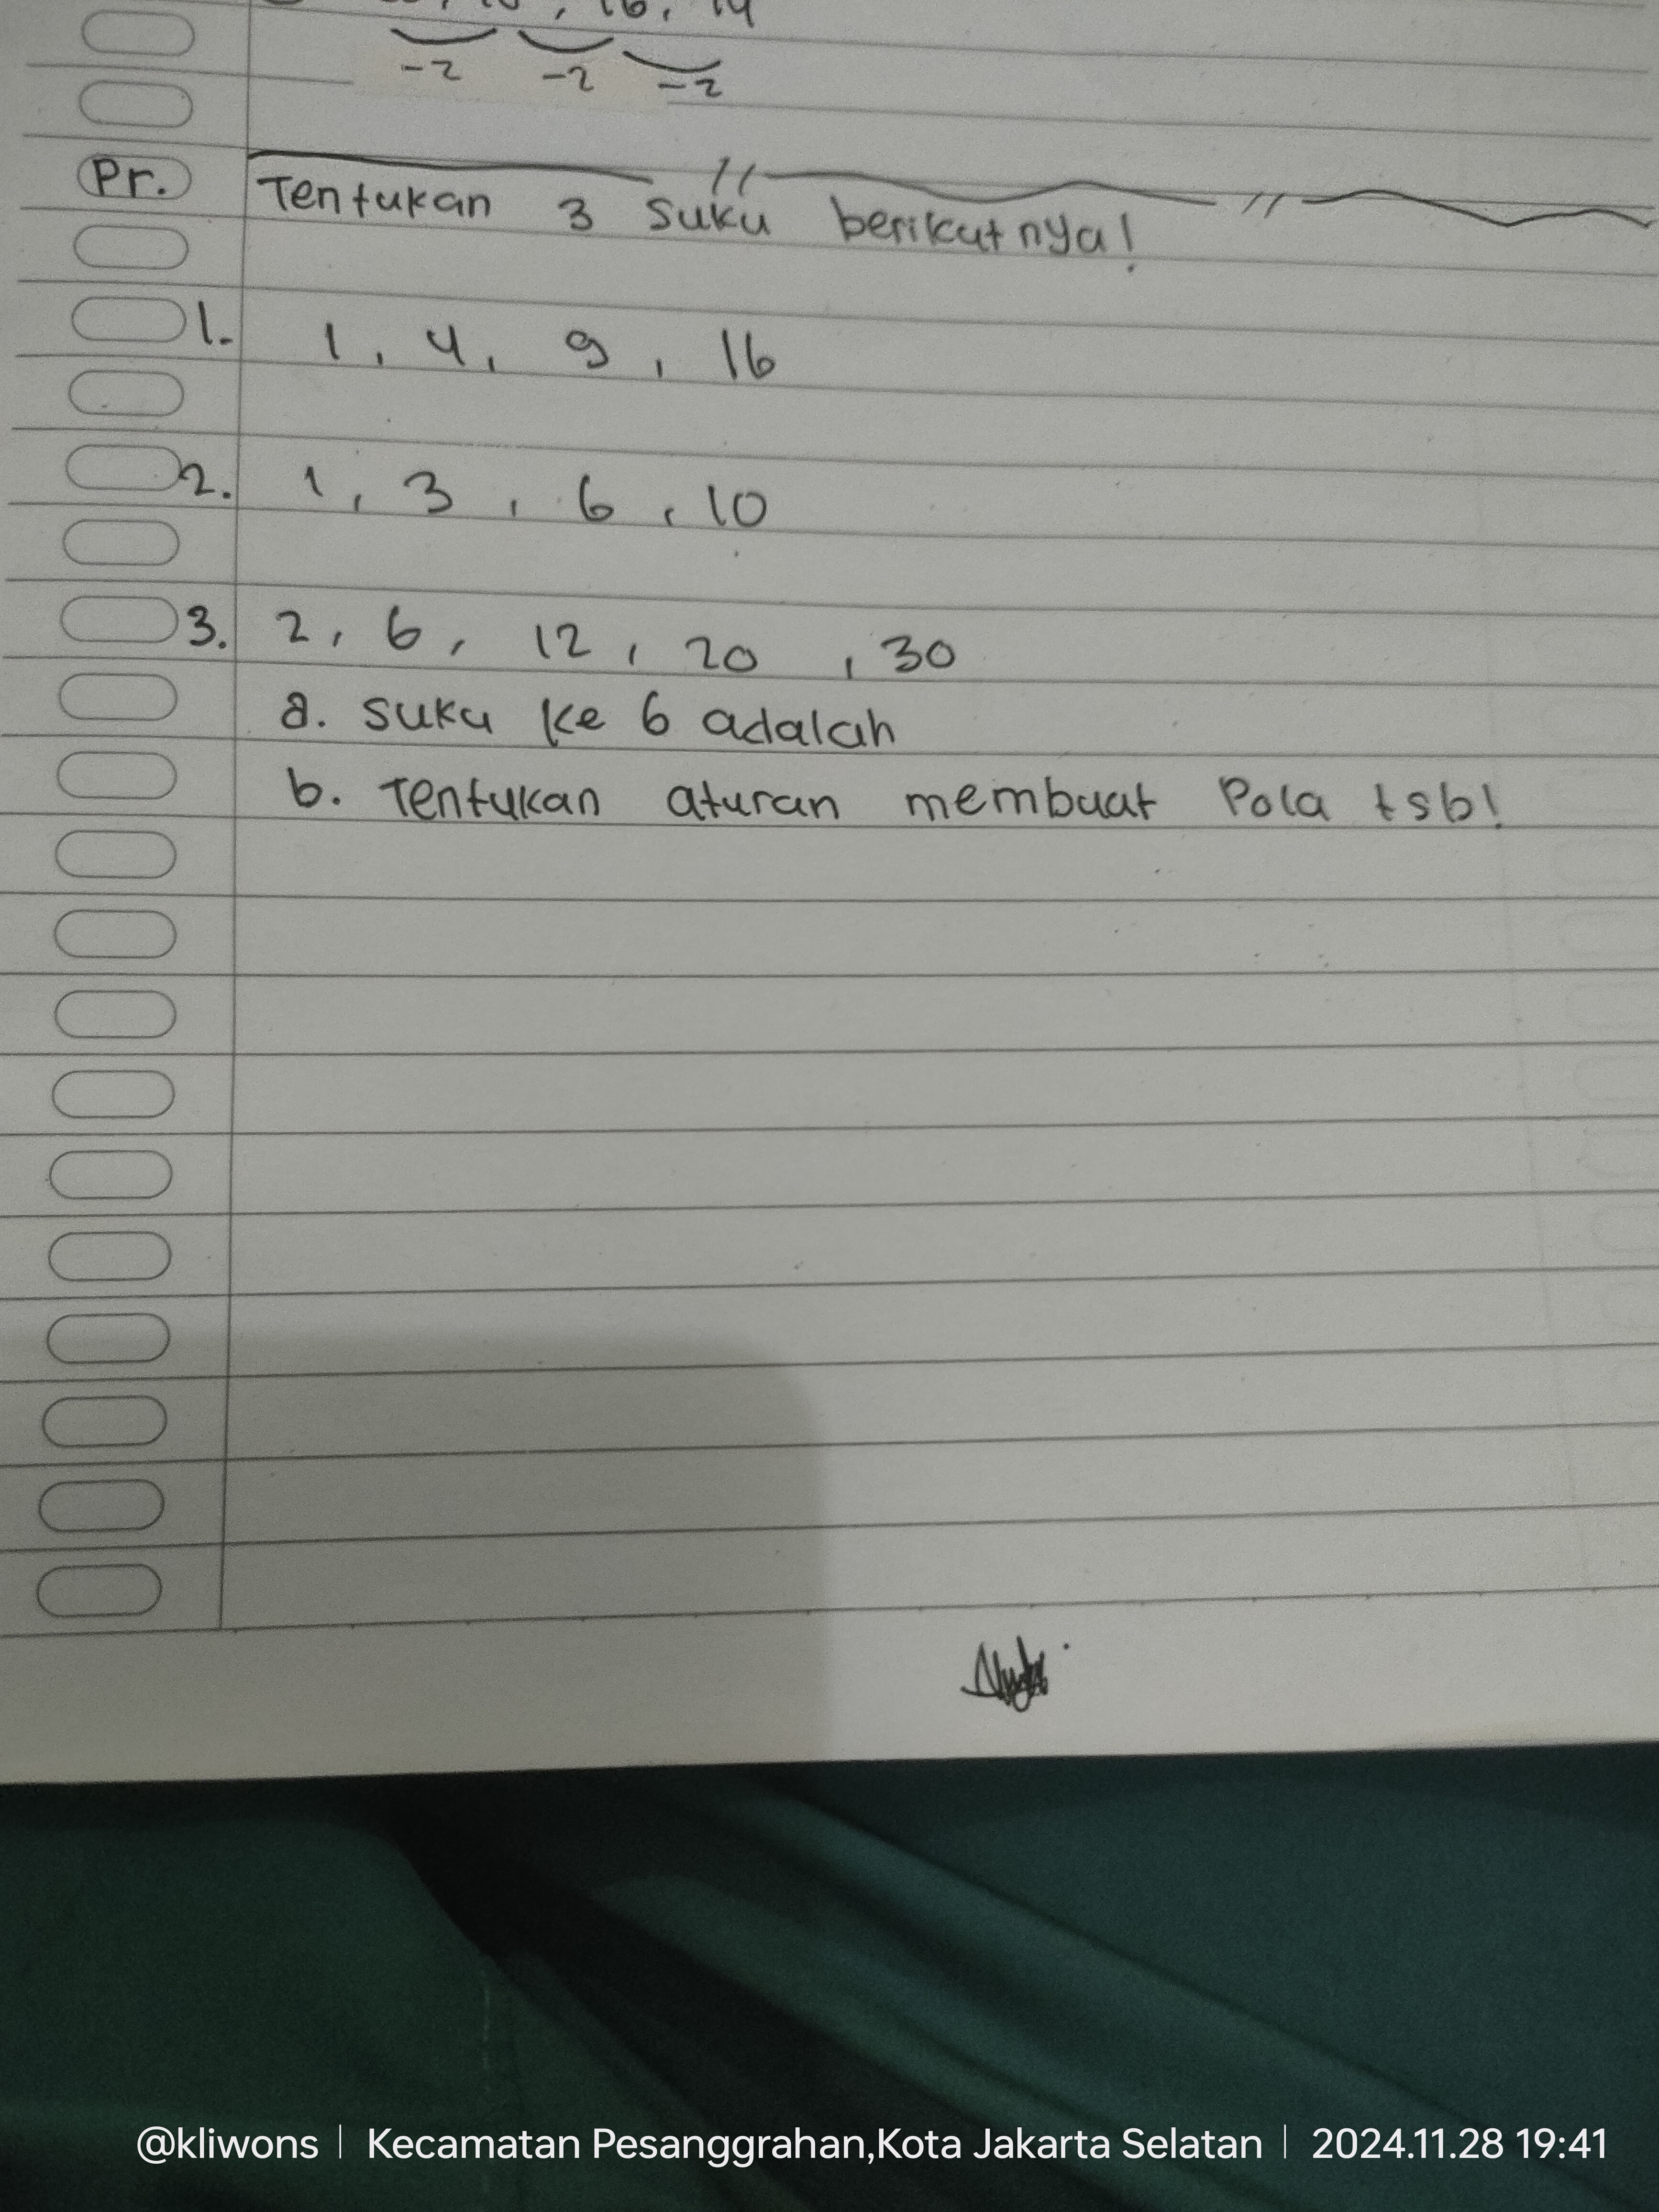 , 16, 14
-2 -2 -2
Pr. Tentukan 3 suku berikutnya!
1. 1, 4, 9, 16
2. 1, 3, 6, 10
3. 2, 6, 12, 20, 30
a. suku ke 6 adalah
b. Tentukan aturan membuat Pola tsb!
@kliwons | Kecamatan Pesanggrahan,Kota Jakarta Selatan | 2024.11.28 19:41